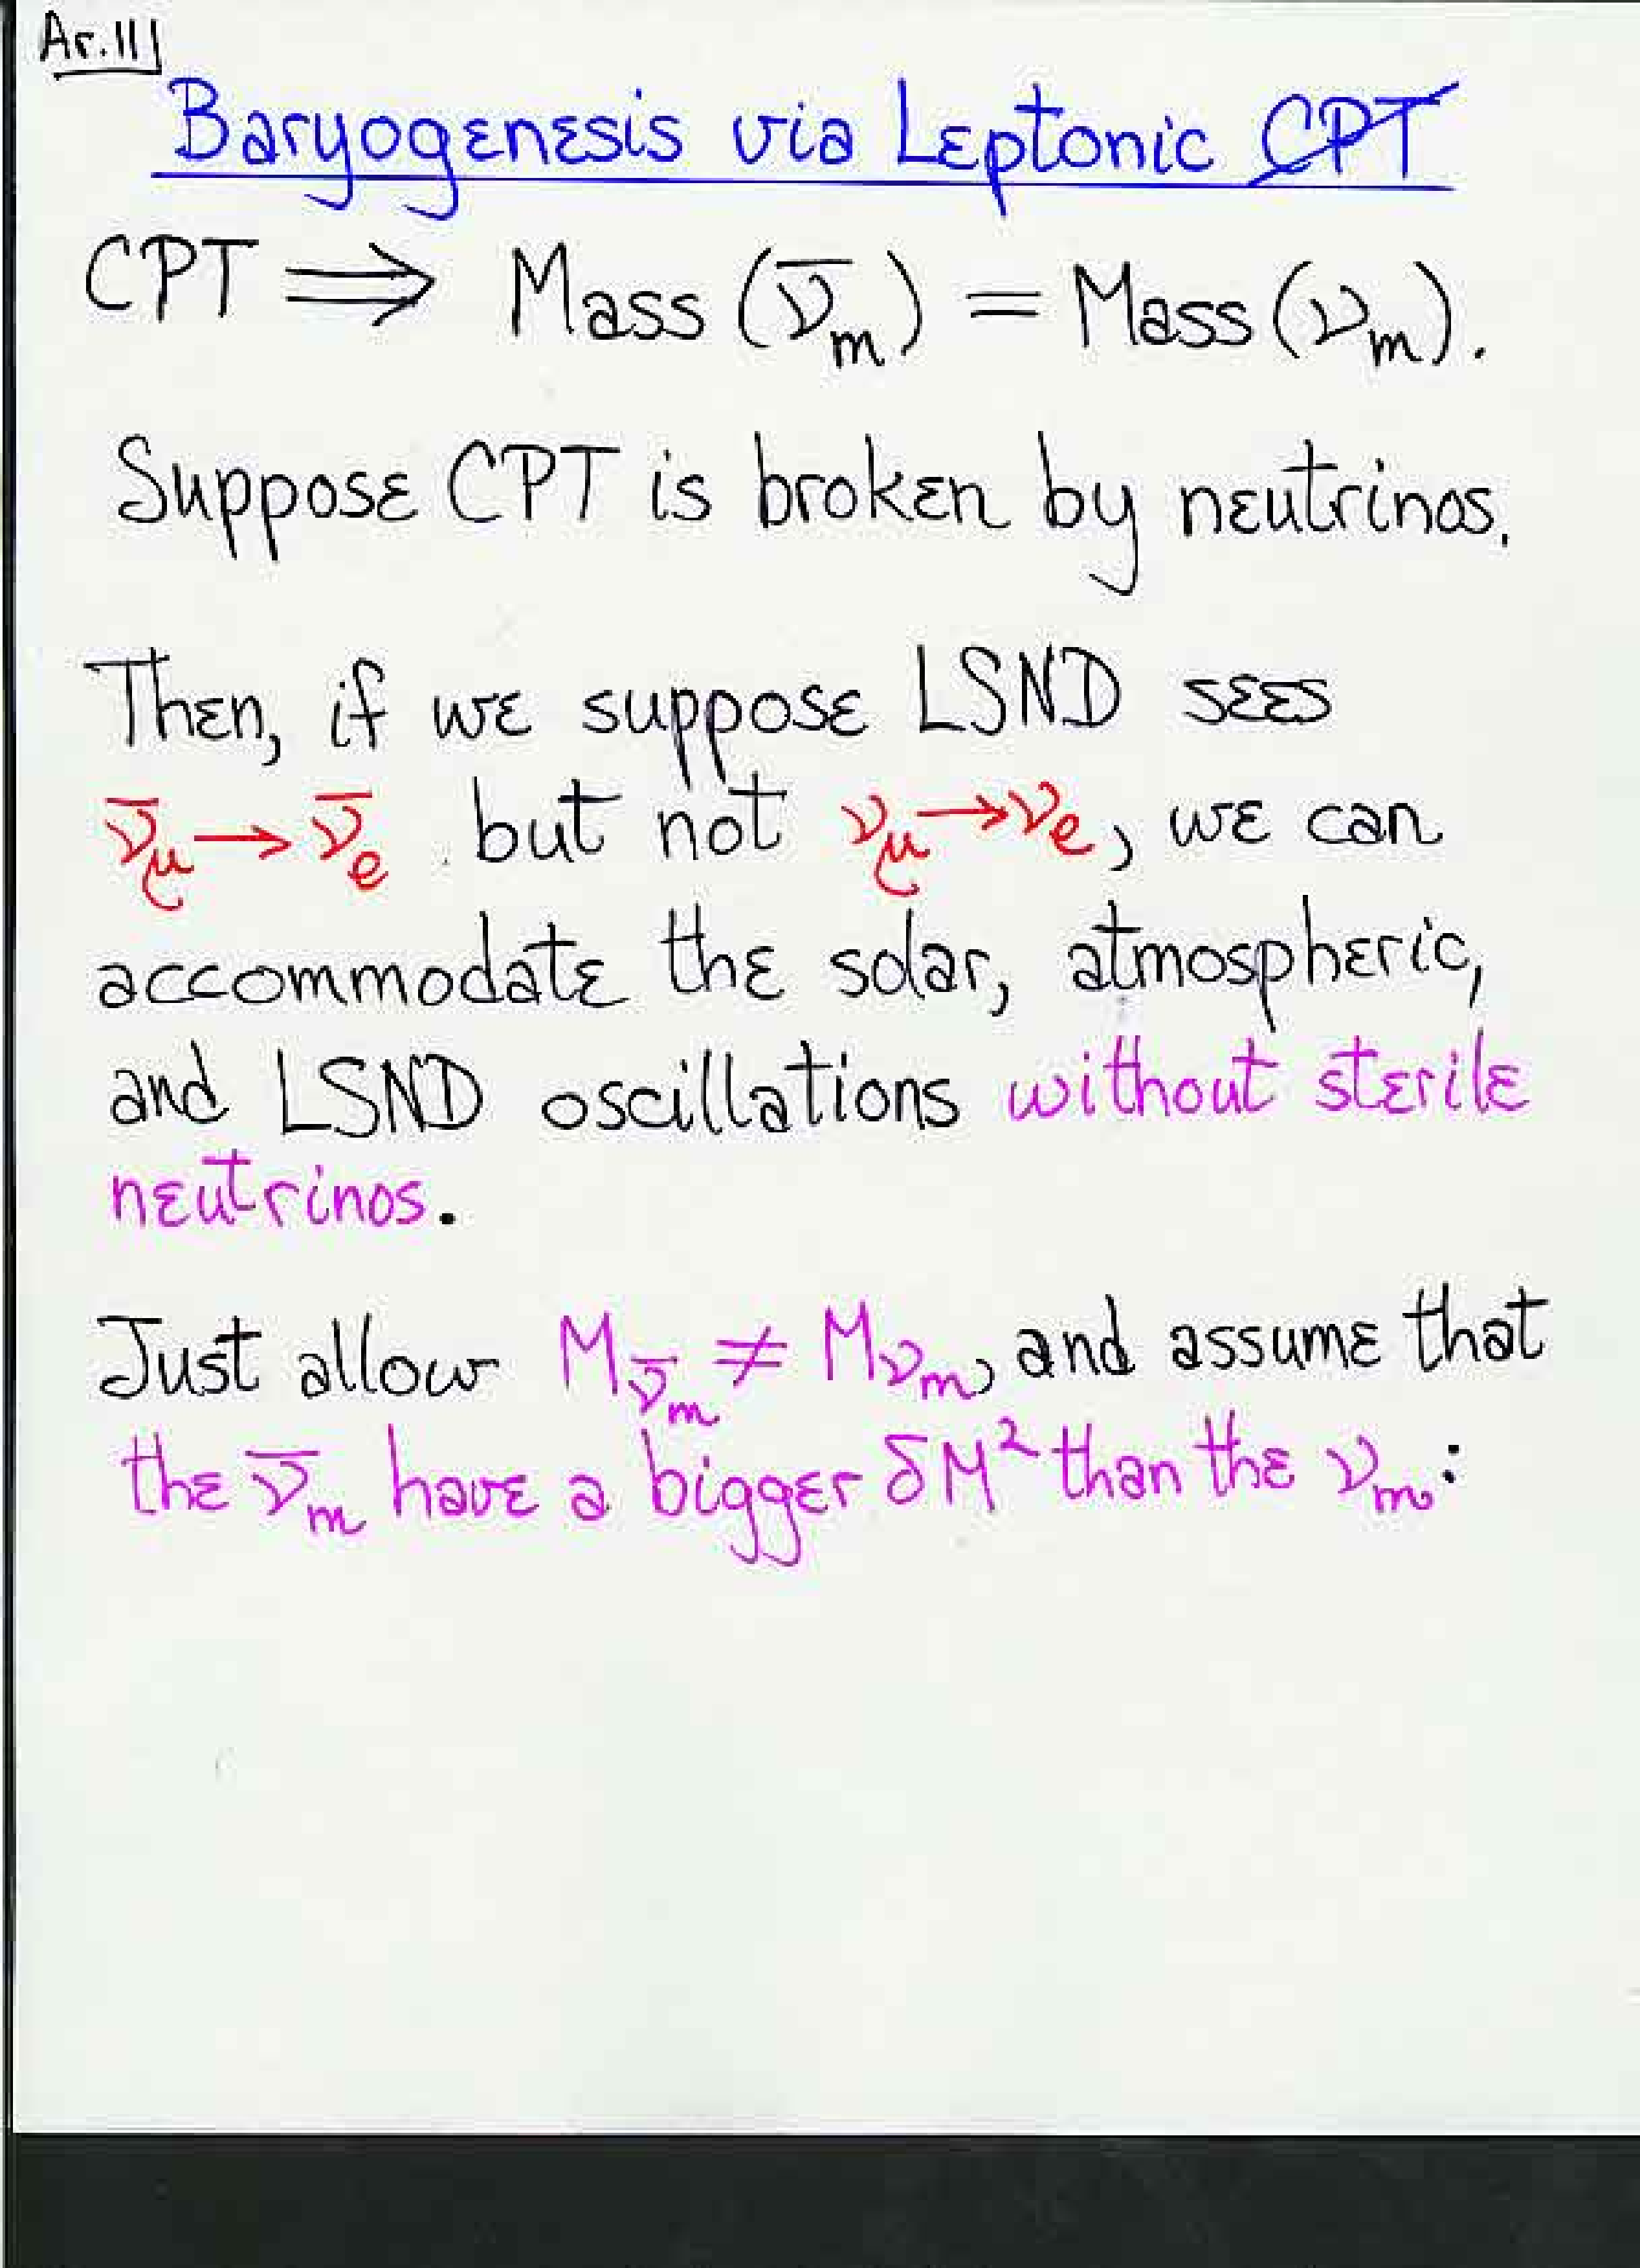 Ar.11
Baryogenesis via Leptonic C̸P̸T̸
CPT ⟹ Mass (ν̄ₘ) = Mass (νₘ).
Suppose CPT is broken by neutrinos.
Then, if we suppose LSND sees
ν̄_μ → ν̄_e but not ν_μ → ν_e, we can
accommodate the solar, atmospheric,
and LSND oscillations without sterile
neutrinos.
Just allow M_ν̄ₘ ≠ M_νₘ, and assume that
the ν̄ₘ have a bigger δM² than the νₘ: